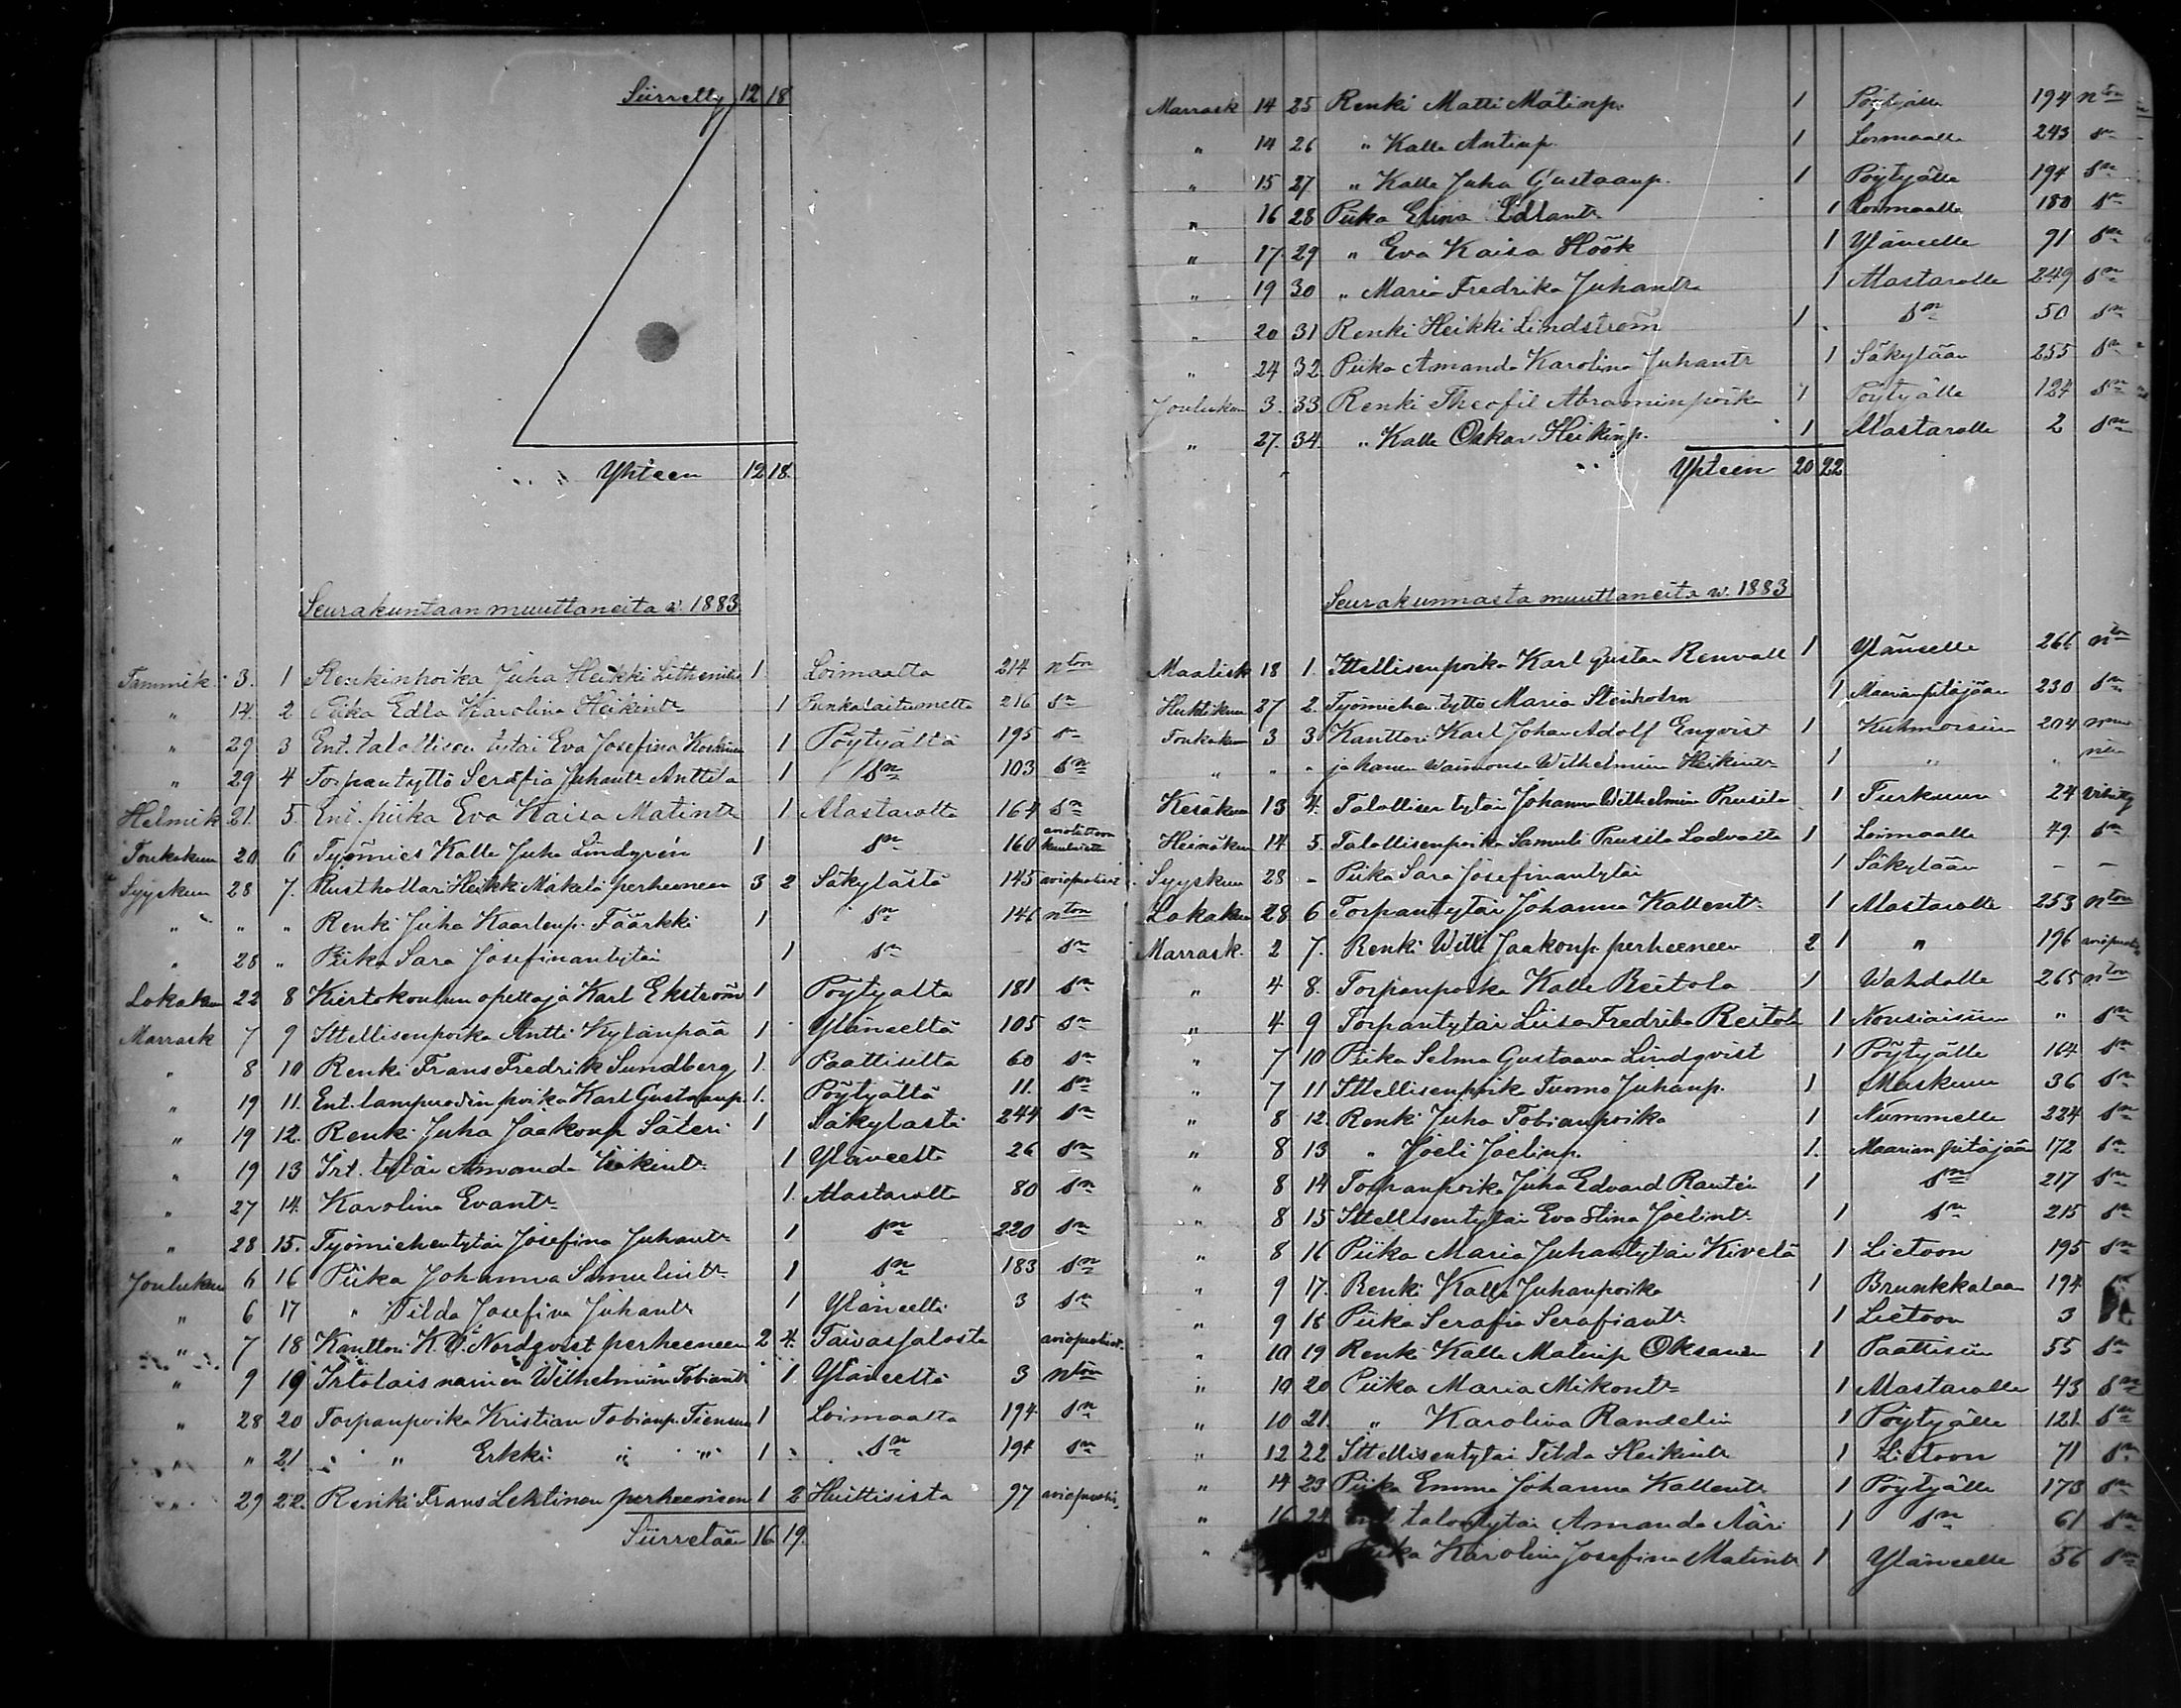 Siirretty 12 18
Yhteen 12 18.
Seurakuntaan muuttaneita v. 1883.
Tammik. 3. 1 Renkinpoika Juha Heikki 1. Loimaalta 214 nton
" 14. 2 Piika Edla Karolina Heikintr 1 Punkalaitumelta 216 sn
" 29 3 Ent. talollisen tytär Eva Josefina Koskinen 1 Pöytyältä 195 sn
" 29 4 Torpantyttö Serafia Juhantr Anttila 1 sn 103 sn
Helmik 21. 5. Ent. piika Eva Kaisa Matintr 1 Alastarolta 164 sn
Toukokuu 20 6 Työmies Kalle Juha Lindgrén 1 sn 160
Syyskuu 28 7. Rusthollari Heikki Mäkelä perheeneen 3 2 Säkylästä 145 aviopuoliset
" " " Renki Juha Kaarlenp. Färkki 1 sn 146 nton
" 28 " Piika Sara Josefinantytär 1 sn sn
Lokakuu 22 8 Kiertokoulun opettaja Karl Ekström 1 Pöytyältä 181 sn
Marrask 7 9 Ittellisenpoika Antti Kylänpää 1 Yläneeltä 105 sn
" 8 10 Renki Frans Fredrik Sundberg 1. Paattiselta 60 sn
" 19 11. Ent. lampuodin poika Karl Gustaanp. 1. Pöytyältä 11. sn
" 19 12. Renki Juha Jaakonp Säteri 1 Säkylästä 244 sn
" 19 13 Irt. tytär Amanda Heikintr 1 Yläneeltä 26 sn
" 27 14. Karolina Evantr 1. Alastarolta 80 sn
" 28 15. Työmiehentytär Josefina Juhantr 1 sn 220 sn
Joulukuu 6 16 Piika Johanna Samulintr 1 sn 183 sn
" 6 17 " Tilda Josefina Juhantr 1 Yläneeltä 3 sn
" 7 18 Kanttori K. V. Nordqvist perheeneen 2 4. Taivassalosta aviopuoliset.
" 9 19 Irtolais nainen Wilhelmiina Tobiantr 1. Yläneeltä 3 nton
" 28 20 Torpanpoika Kristian Tobianp. Tiensuu 1 Loimaalta 194 sn
" " 21 " Erkki " " 1 sn 194 sn
" 29 22. Renki Frans Lehtinen perheeneen 1 2 Huittisista 97 aviopuolis.
Siirretään 16 19.
Marrask 14 25 Renki Matti Matinp. 1 Pöytyälle 194 nton
" 14 26 " Kalle Antinp. 1 Loimaalle 243 sn
" 15 27 " Kalle Juha Gustaanp. 1 Pöytyälle 194 sn
" 16 28 Piika Elina Edlantr 1 Loimaalle 180 sn
" 17. 29 " Eva Kaisa Höök 1 Yläneelle 91 sn
" 19 30 " Maria Fredrika Juhantr 1 Alastarolle 249 sn
" 20 31 Renki Heikki Lindström 1 sn 50 sn
" 24 32. Piika Amanda Karolina Juhantr 1 Säkylään 255 sn
Joulukuu 3. 33. Renki Theofil Abraminpoika 1 Pöytyälle 124 sn
" 27. 34. " Kalle Oskar Heikinp. 1 Alastarolle 2 sn
Yhteen 20 22
Seurakunnasta muuttaneita w. 1883
Maalisk 18 1. Ittellisenpoika Karl Gustaa Renvall 1 Yläneelle 266 nton
Huhtikuu 27 2. Työmiehen tyttö Maria Stenholm 1 Maarianpitäjään 230 sn
Toukokuu 3 3. Kanttori Karl Johan Adolf Enqvist 1 Kuhmoisiin 204
" " " ja hänen waimonsa Wilhelmiina Heikintr 1 " "
Kesäkuu 13 4. Talollisen tytär Johanna Wilhelmiina Prusila 1 Turkuun 24 vihitty
Heinäkuu 14 5. Talollisenpoika Samuli Prusila Ladvalta 1 Loimaalle 49. sn
Syyskuu 28 - Piika Sara Josefinantytär 1 Säkylään - -
Lokakuu 28 6 Torpantytär Johanna Kallentr 1 Alastarolle 253 nton
Marrask. 2 7. Renki Wille Jaakonp. perheeneen 2 1 " 196 aviopuolis
" 4 8. Torpanpoika Kalle Reitola 1 Wahdolle 265 nton
" 4 9 Torpantytär Liisa Fredrika Reitola 1 Nousiaisiin " sn
" 7 10 Piika Selma Gustaava Lindqvist 1 Pöytyälle 164 sn
" 7 11 Ittellisenpoika Tuomo Juhanp. 1 Maskuun 36 sn
" 8 12. Renki Juha Tobianpoika 1 Nummelle 224 sn
" 8 13 " Joeli Joelinp. 1. Maarian pitäjään 172 sn
" 8 14 Torpanpoika Juha Edvard Rautén 1 sn 217 sn
" 8 15 Ittellisentytär Eva Stina Joelintr 1 sn 215 sn
" 8 16 Piika Maria Juhantytär Kivelä 1 Lietoon 195 sn
" 9 17. Renki Kalle Juhanpoika 1 Brunkkalaan 194
" 9 18 Piika Serafia Serafiantr 1 Lietoon 3
" 10 19 Renki Kalle Matinp Oksanen 1 Paattisiin 55 sn
" 10 20 Piika Maria Mikontr 1 Alastarolle 43 sn
" 10 21. " Karolina Randelin 1 Pöytyälle 121. sn
" 12 22 Ittellisentytär Tilda Heikintr 1 Lietoon 71 sn
" 14 23 Piika Emma Johanna Kallentr 1 Pöytyälle 173 sn
" 16 24 talontytär Amanda Ääri 1 sn 61 sn
" Piika Karolina Josefina Matintr 1 Yläneelle 56 sn